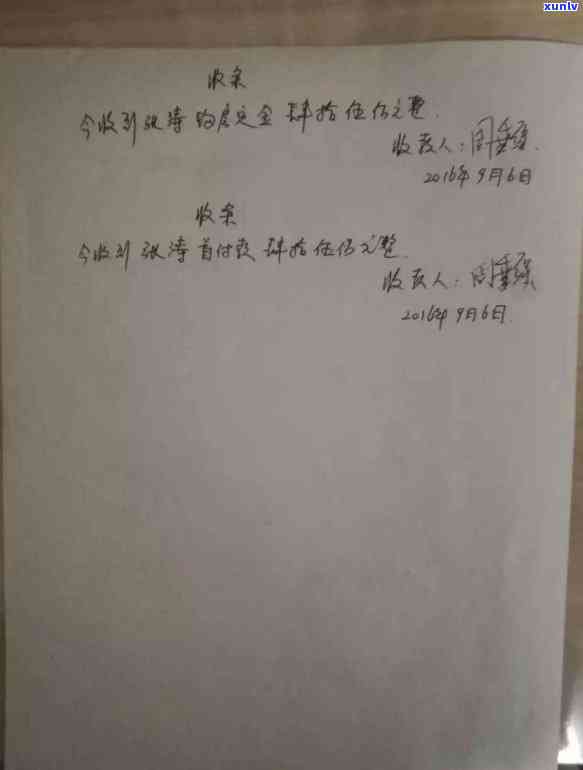 xunlv
收条
今收到张涛购房定金肆拾伍佰元整.
收款人:周
2016年9月6日
收条
今收到张涛首付款肆拾伍佰元整.
收款人:周
2016年9月6日